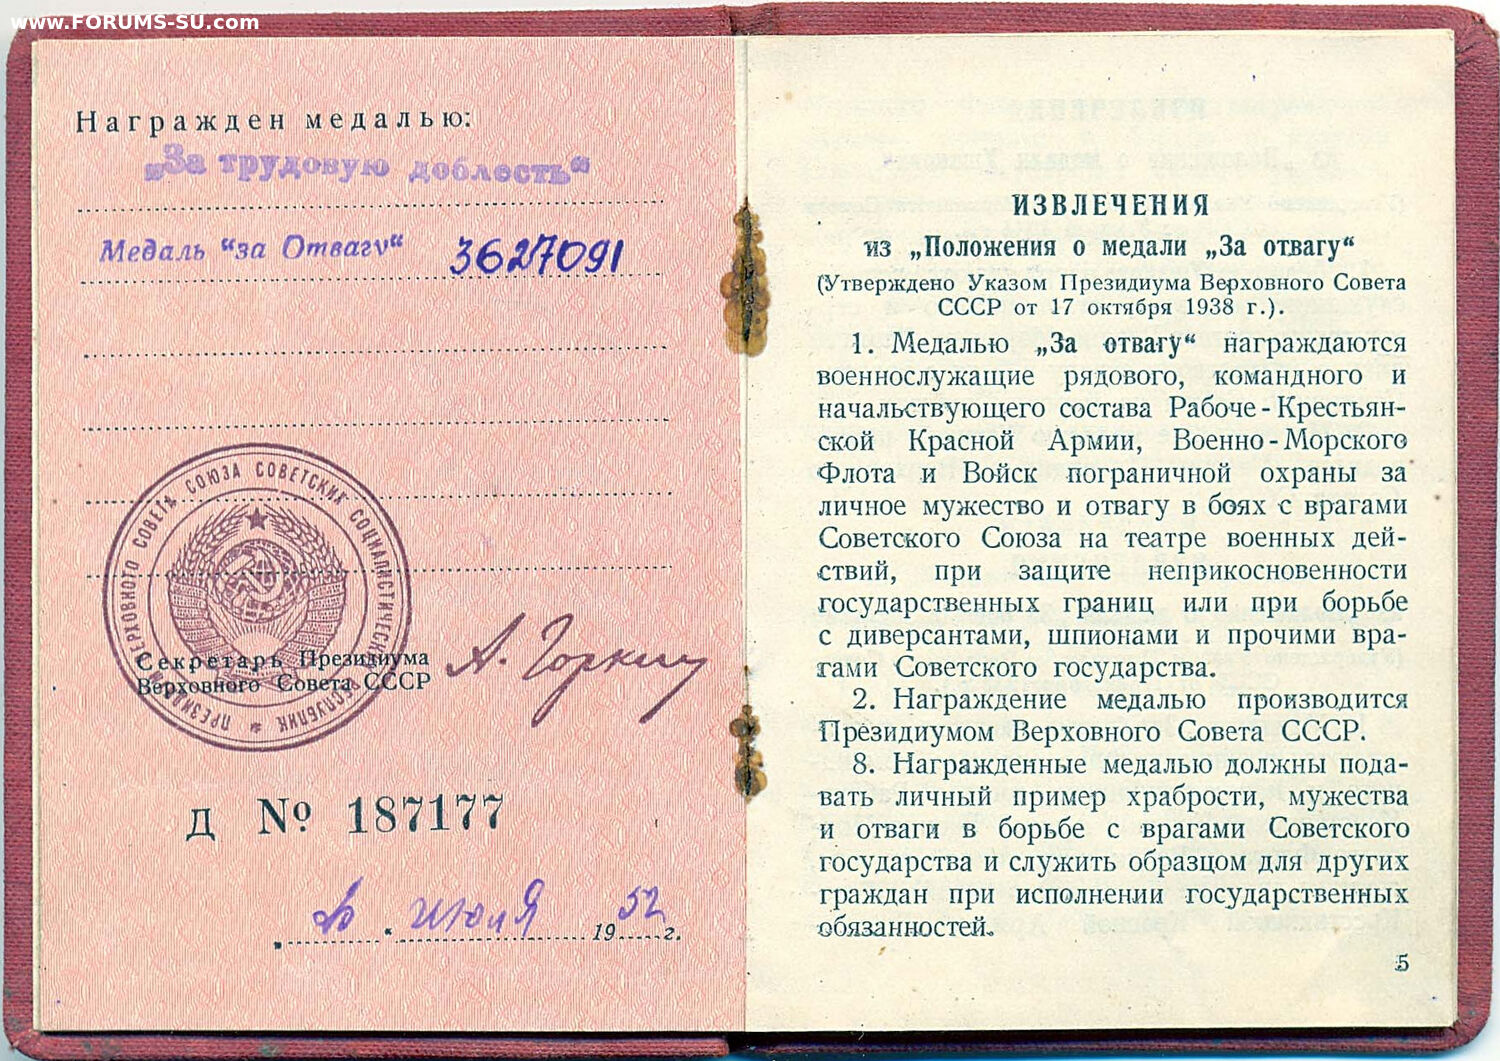 www.FORUMS-SU.com
Награжден медалью:
„За трудовую доблесть“
Медаль “за Отвагу“ 3627091
ПРЕЗИДИУМ ВЕРХОВНОГО СОВЕТА СОЮЗА СОВЕТСКИХ СОЦИАЛИСТИЧЕСКИХ РЕСПУБЛИК
Секретарь Президиума
Верховного Совета СССР
А. Горкин
Д № 187177
„ “ июля 1952 г.
ИЗВЛЕЧЕНИЯ
из „Положения о медали „За отвагу“
(Утверждено Указом Президиума Верховного Совета
СССР от 17 октября 1938 г.).
1. Медалью „За отвагу“ награждаются
военнослужащие рядового, командного и
начальствующего состава Рабоче-Крестьян-
ской Красной Армии, Военно-Морского
Флота и Войск пограничной охраны за
личное мужество и отвагу в боях с врагами
Советского Союза на театре военных дей-
ствий, при защите неприкосновенности
государственных границ или при борьбе
с диверсантами, шпионами и прочими вра-
гами Советского государства.
2. Награждение медалью производится
Президиумом Верховного Совета СССР.
8. Награжденные медалью должны пода-
вать личный пример храбрости, мужества
и отваги в борьбе с врагами Советского
государства и служить образцом для других
граждан при исполнении государственных
обязанностей.
5